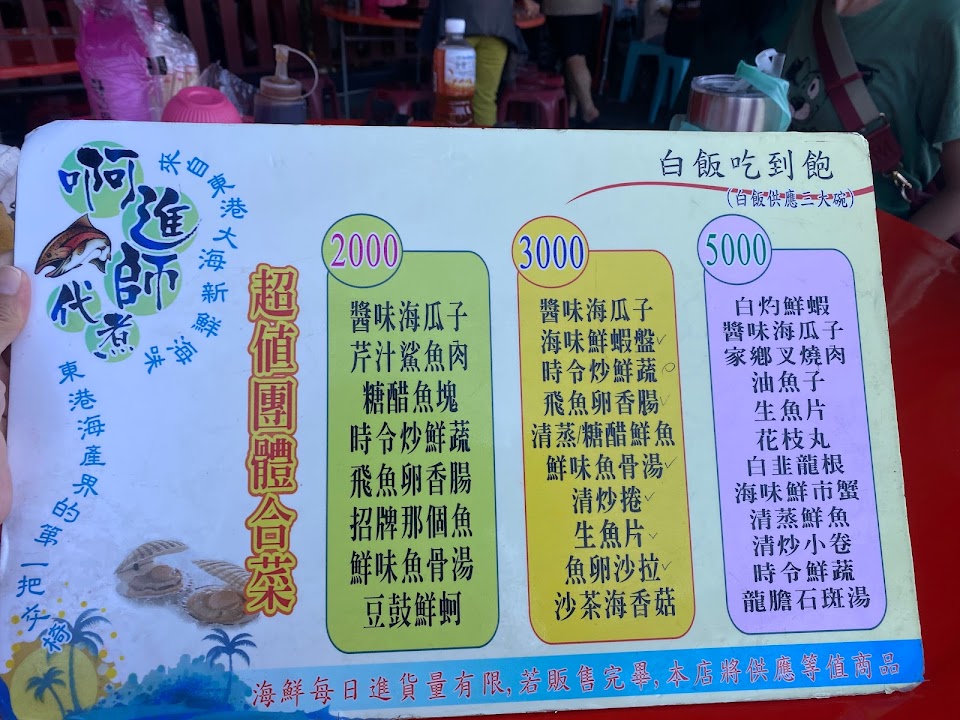 啊進師
代煮
來自東港大海新鮮海味
東港海產界的第一把交椅
超值團體合菜
白飯吃到飽
(白飯供應三大碗)
2000
醬味海瓜子
芹汁鯊魚肉
糖醋魚塊
時令炒鮮蔬
飛魚卵香腸
招牌那個魚
鮮味魚骨湯
豆鼓鮮蚵
3000
醬味海瓜子
海味鮮蝦盤
時令炒鮮蔬
飛魚卵香腸
清蒸/糖醋鮮魚
鮮味魚骨湯
清炒捲
生魚片
魚卵沙拉
沙茶海香菇
5000
白灼鮮蝦
醬味海瓜子
家鄉叉燒肉
油魚子
生魚片
花枝丸
白韭龍根
海味鮮市蟹
清蒸鮮魚
清炒小卷
時令鮮蔬
龍膽石斑湯
海鮮每日進貨量有限,若販售完畢,本店將供應等值商品